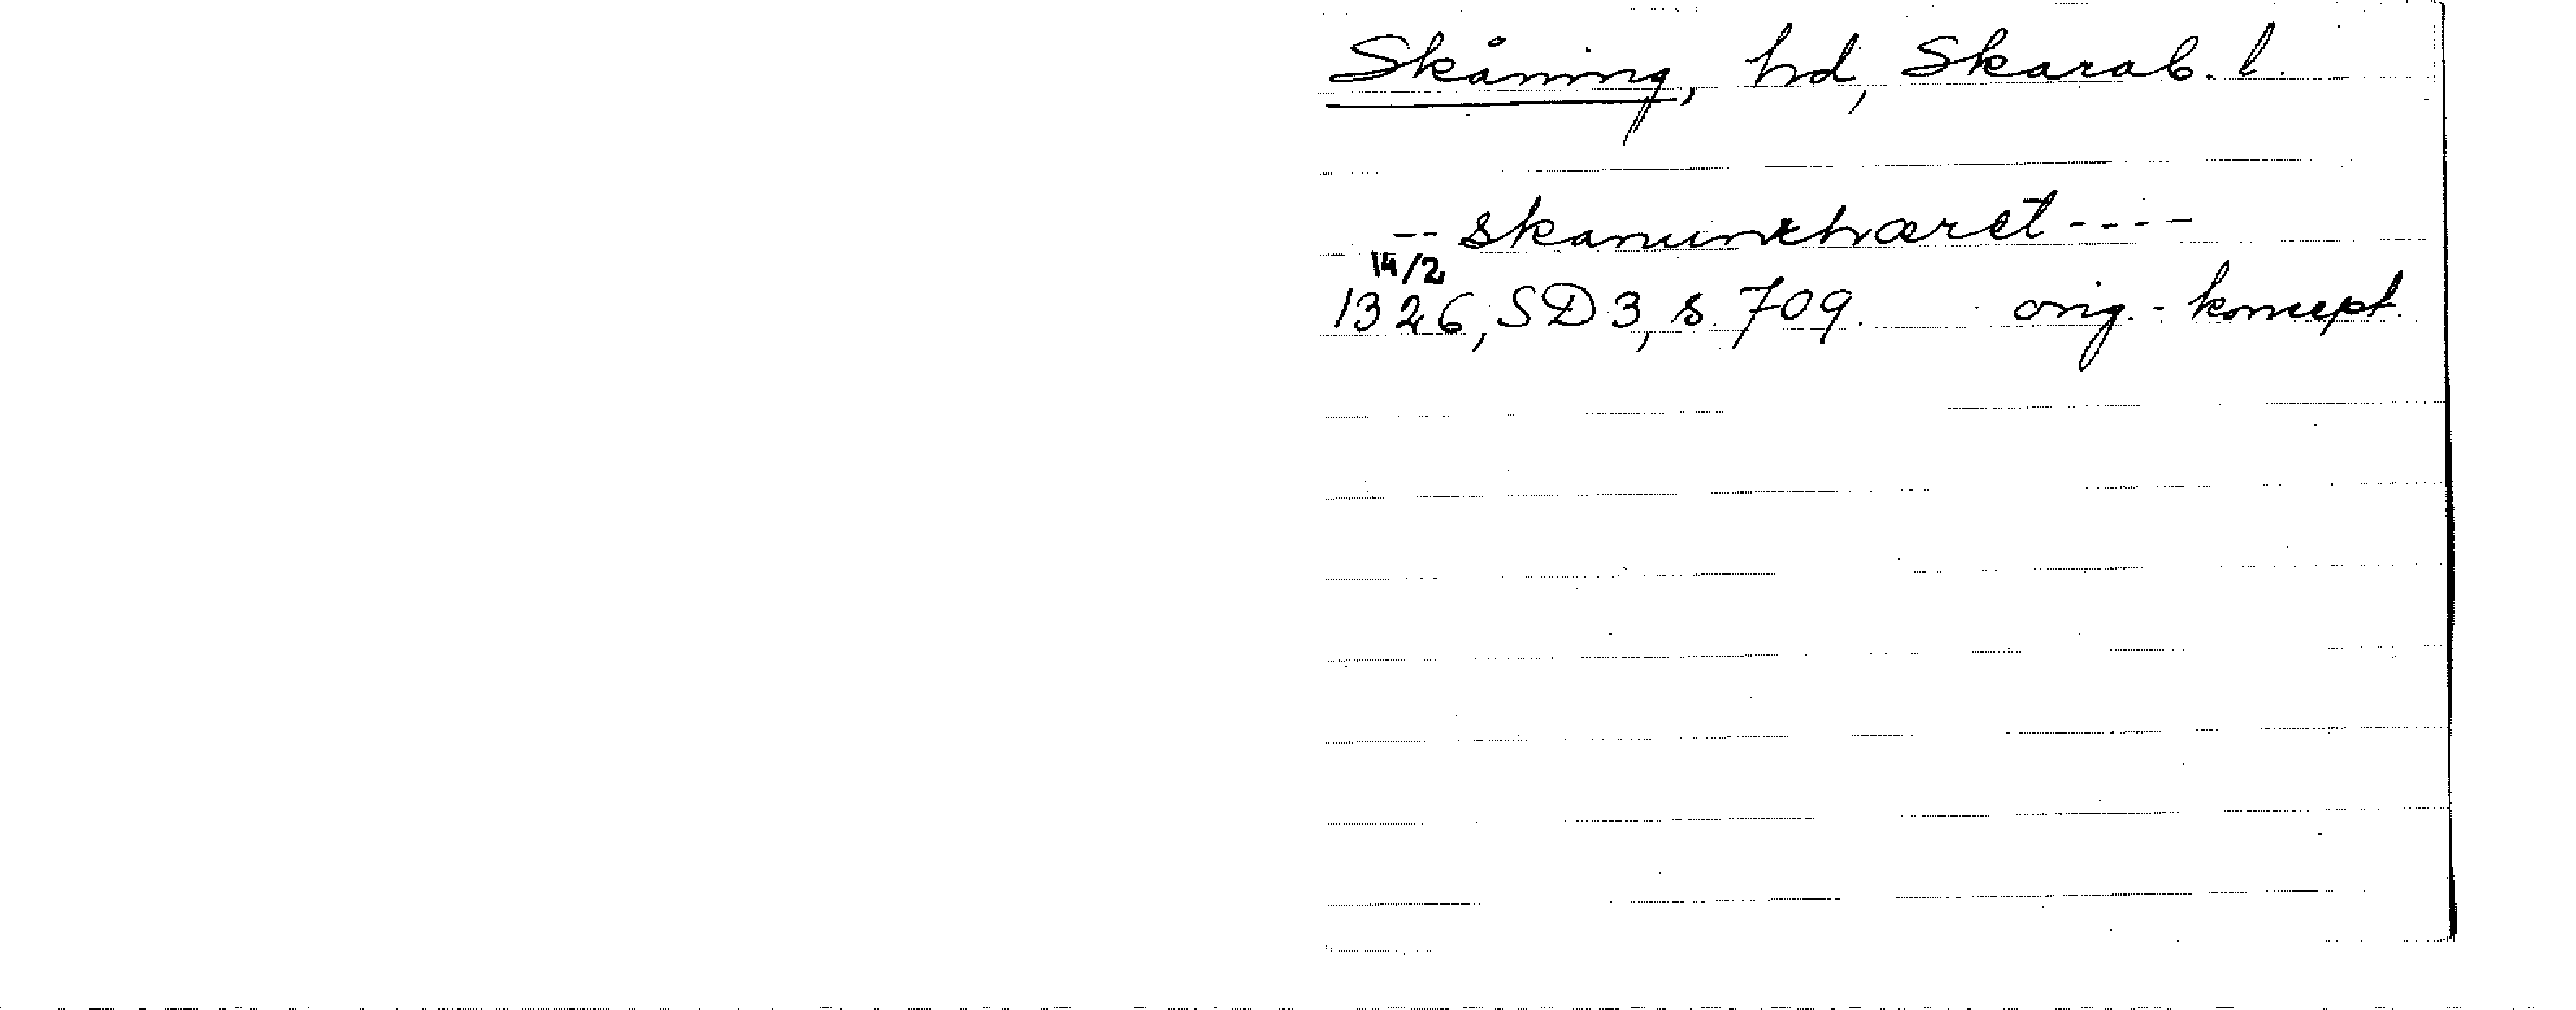 Skåning, hd, Skarab. l.
-- skanunkhæret ----
14/2
1326, SD 3, s. 709. orig.-koncept.